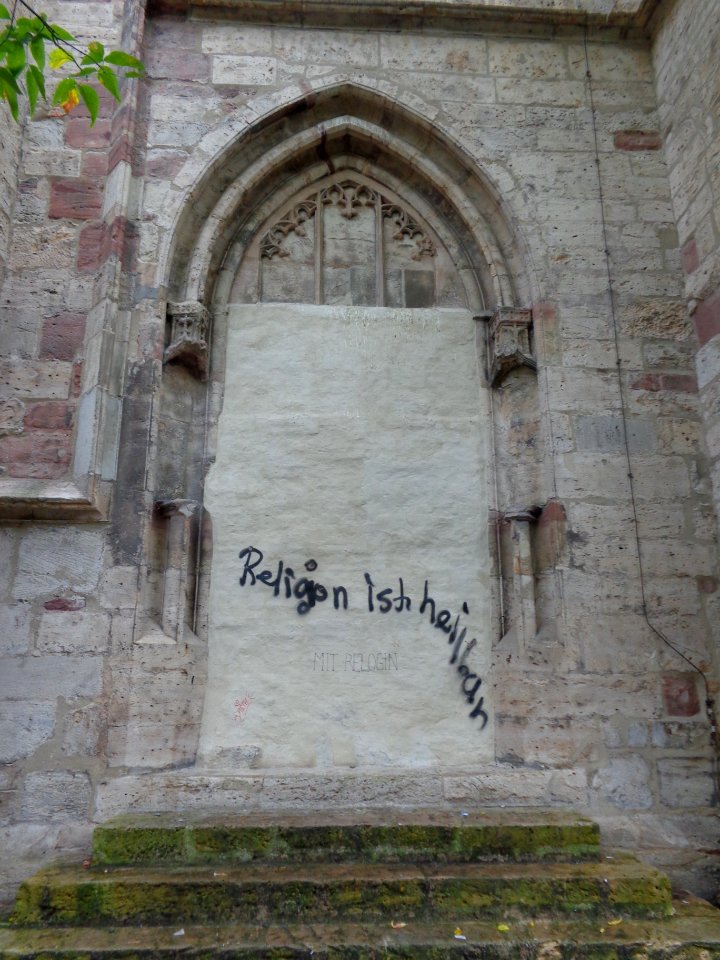 Religion ist heilbar
MIT RELOGIN